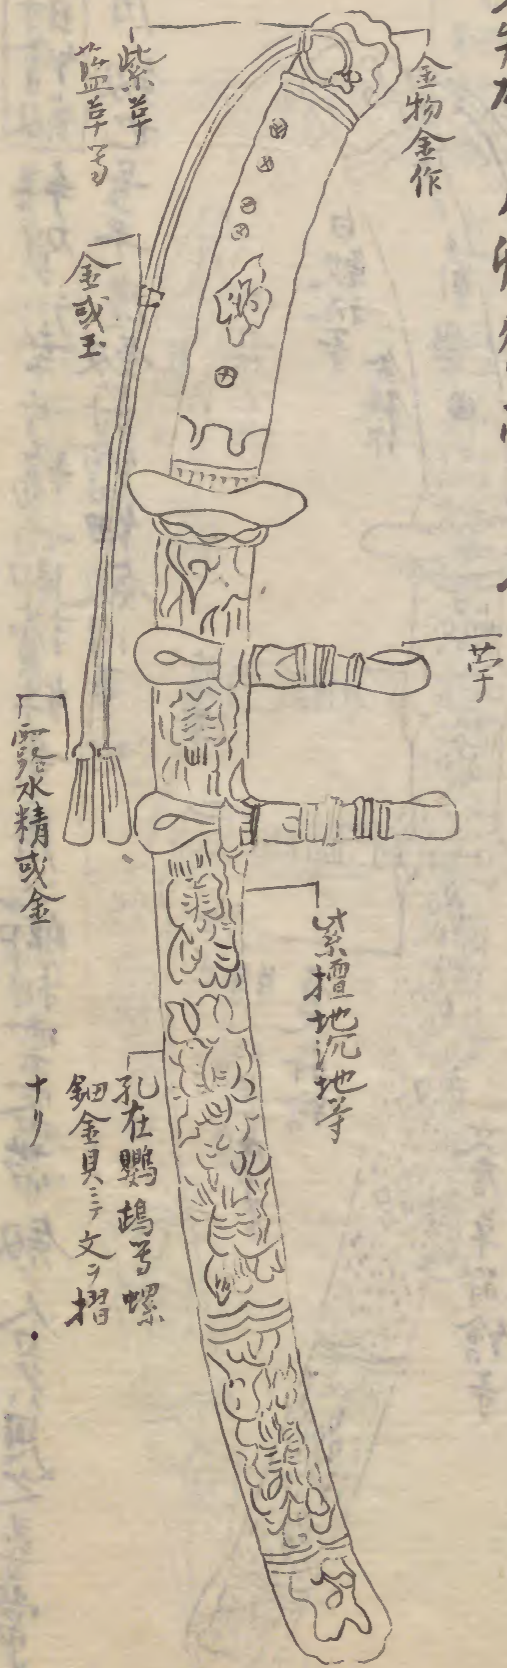 金物金作
紫革
藍革等
金或玉
露水精或金
紫檀地沉地等
孔在鸚鵡等螺
鈿金貝ニテ文ヲ摺
ナリ